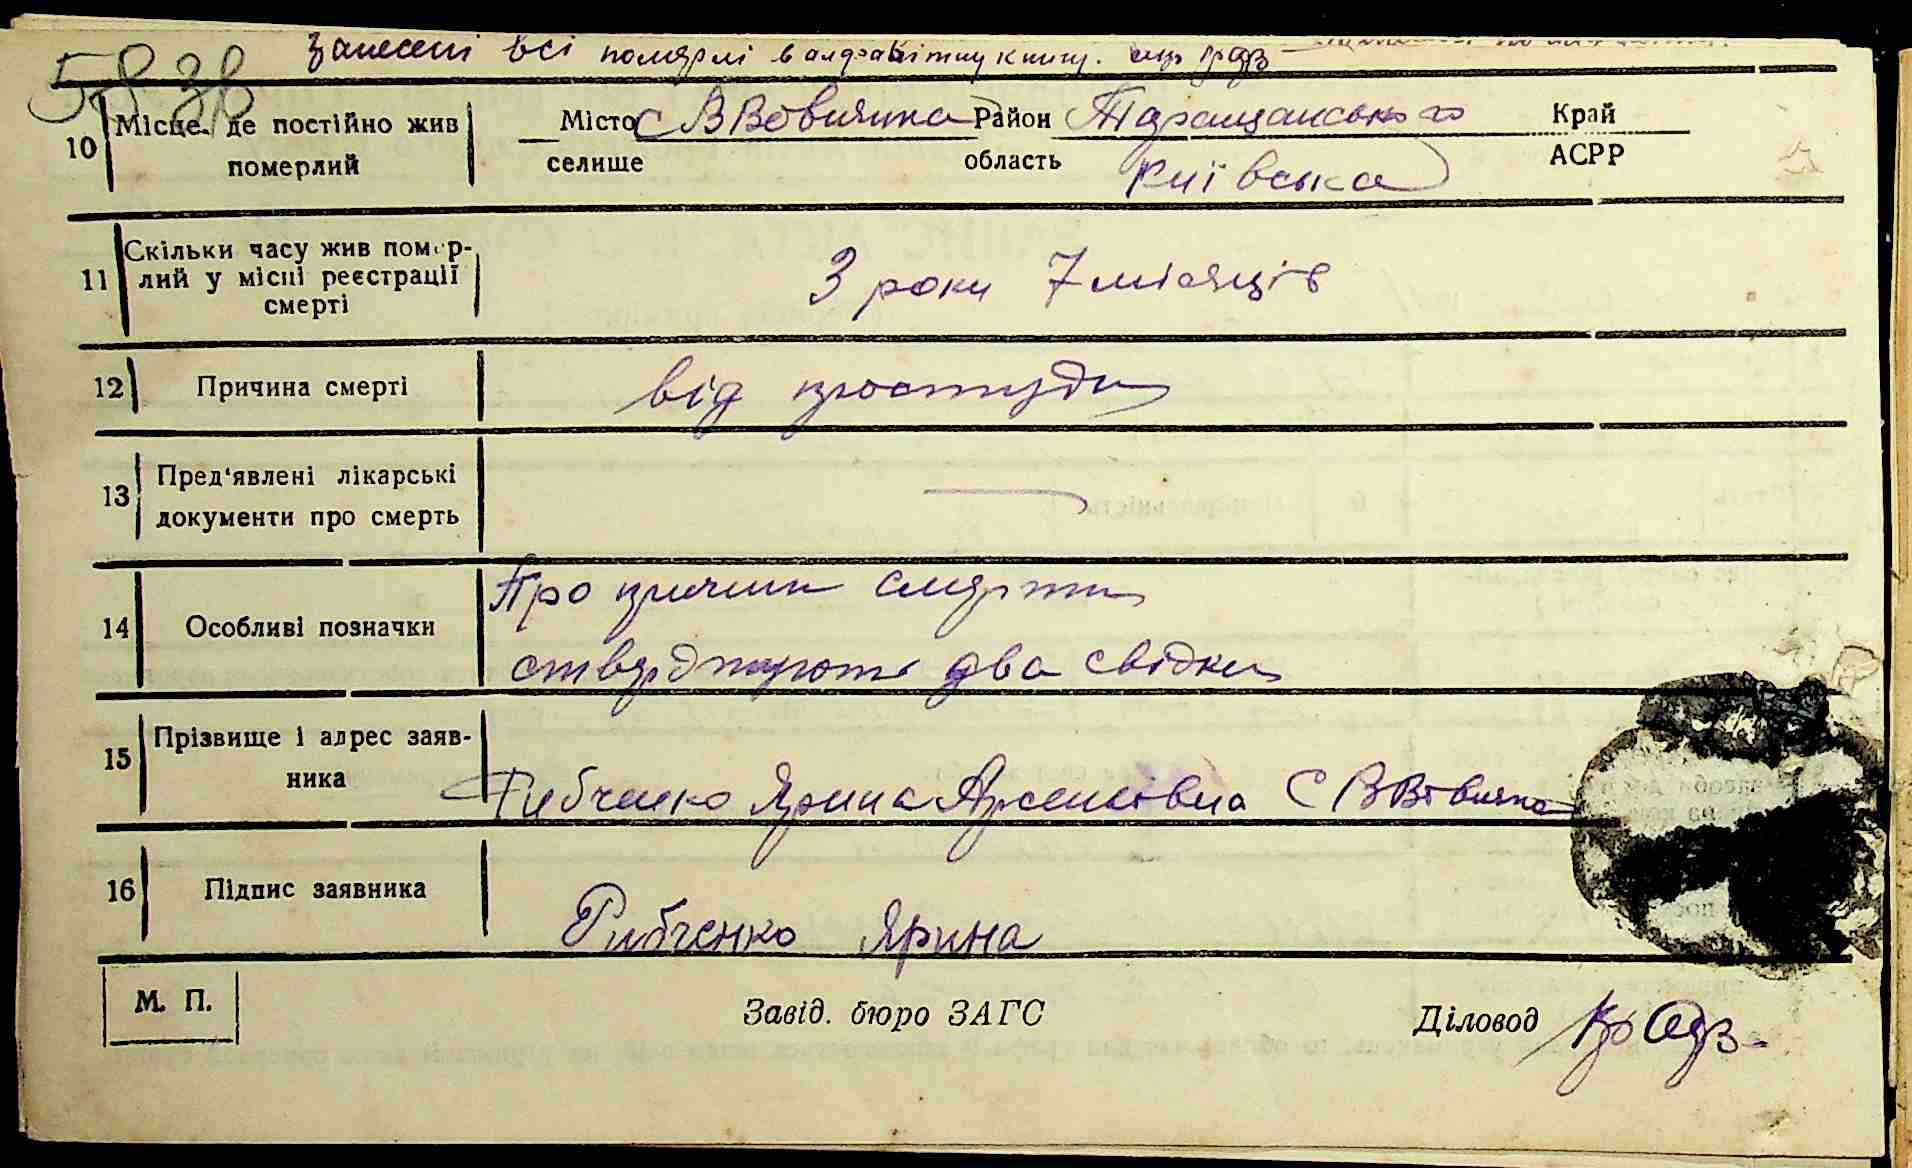 58 зв
Занесені всі помэрлі в алфавітну книгу.
10 Місце, де постійно жив померлий
Місто селище с В Вовнянка Район область Таращанського Київська Край АСРР
11 Скільки часу жив померлий у місці реєстрації смерті
3 роки 7 місяців
12 Причина смерті
від простуди
13 Пред'явлені лікарські документи про смерть
—
14 Особливі позначки
Про причини смэрти
ствэрджують два свідки
15 Прізвище і адрес заявника
Рибченко Ярина Арсенівна С В Вовнянка
16 Підпис заявника
Рибченко Ярина
М. П.
Завід. бюро ЗАГС
Діловод